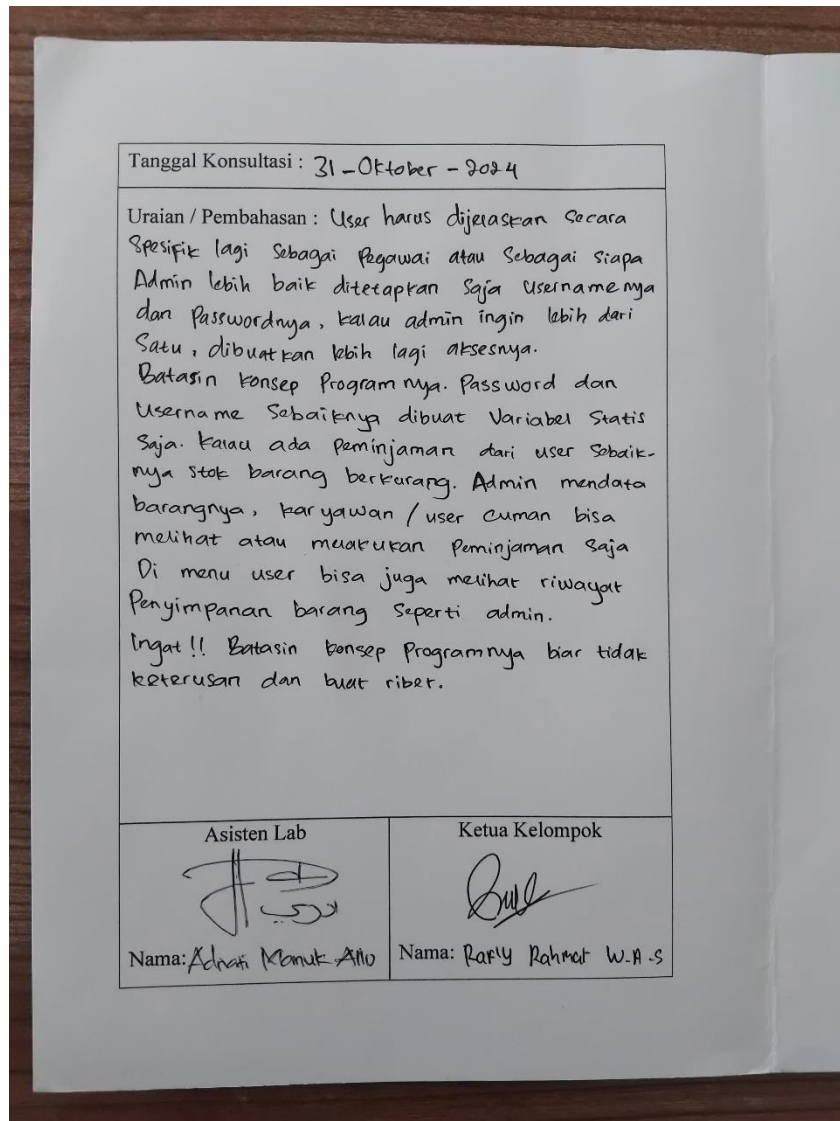 Tanggal Konsultasi : 31 - Oktober - 2024
Uraian / Pembahasan : User harus dijelaskan Secara
Spesifik lagi Sebagai Pegawai atau Sebagai Siapa
Admin lebih baik ditetapkan Saja Username nya
dan Passwordnya, kalau admin ingin lebih dari
Satu, dibuatkan lebih lagi aksesnya.
Batasin konsep Program nya. Password dan
Username Sebaiknya dibuat Variabel Statis
Saja. Kalau ada Peminjaman dari user Sebaik-
nya stok barang berkurang. Admin mendata
barangnya, karyawan / user cuman bisa
melihat atau melakukan Peminjaman Saja
Di menu user bisa juga melihat riwayat
Penyimpanan barang Seperti admin.
Ingat !! Batasin konsep Programnya biar tidak
keterusan dan buat ribet.
Asisten Lab
Ketua Kelompok
Nama:
Nama: Rafly Rahmat W.A.S